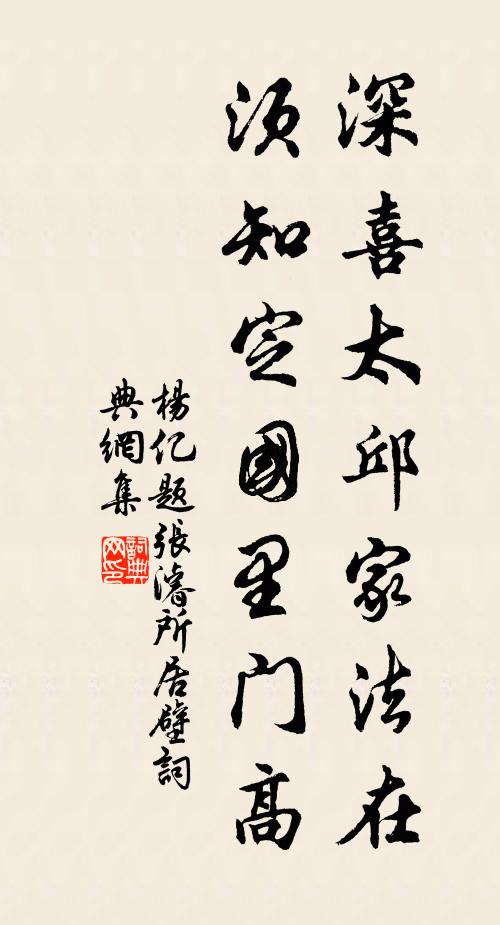 深喜太邱家法在
须知定國里门高
楊亿题張濬所居壁詞
典網集
詞典网印